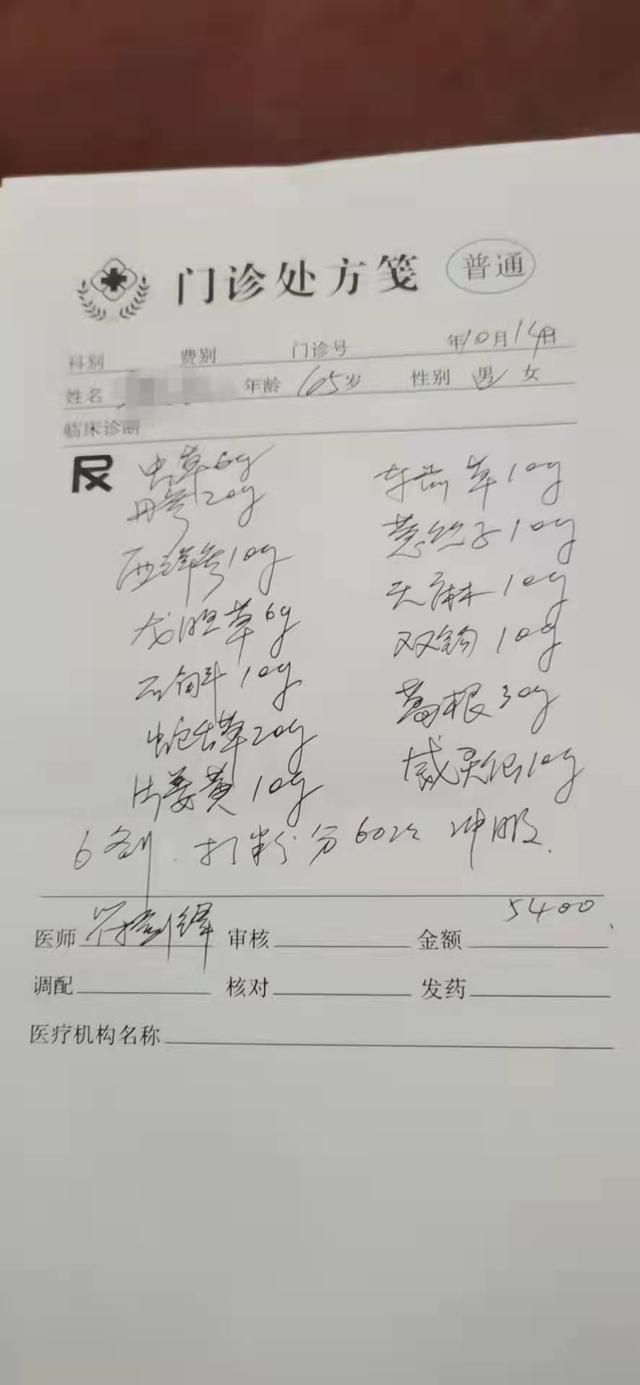 门诊处方笺 普通
科别 费别 门诊号 年10月14日
姓名 年龄 65岁 性别 男 女
临床诊断
虫草6g
丹参20g
西洋参10g
龙胆草6g
石斛10g
蛇舌草20g
片姜黄10g
车前草10g
菟丝子10g
天麻10g
双钩10g
葛根30g
威灵仙10g
6剂.打粉分60次 冲服.
医师 审核 金额 5400
调配 核对 发药
医疗机构名称